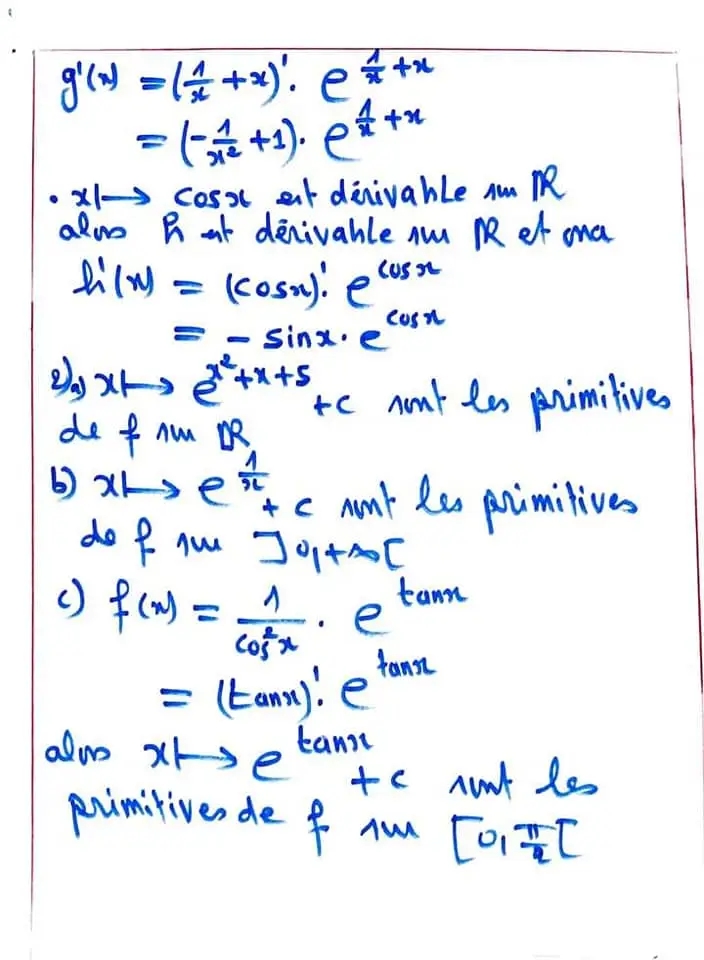 g'(x) = (1/x + x)'. e^(1/x + x)
= (-1/x² + 1). e^(1/x + x)
• x ↦ cosx est dérivable sur ℝ
alors h est dérivable sur ℝ et ona
h'(x) = (cosx)'. e^(cosx)
= - sinx. e^(cosx)
2) a) x ↦ e^(x²+x+5) + c sont les primitives
de f sur ℝ
b) x ↦ e^(1/x) + c sont les primitives
de f sur ]0,+∞[
c) f(x) = 1/cos²x . e^(tanx)
= (tanx)'. e^(tanx)
alors x ↦ e^(tanx) + c sont les
primitives de f sur [0, π/2[